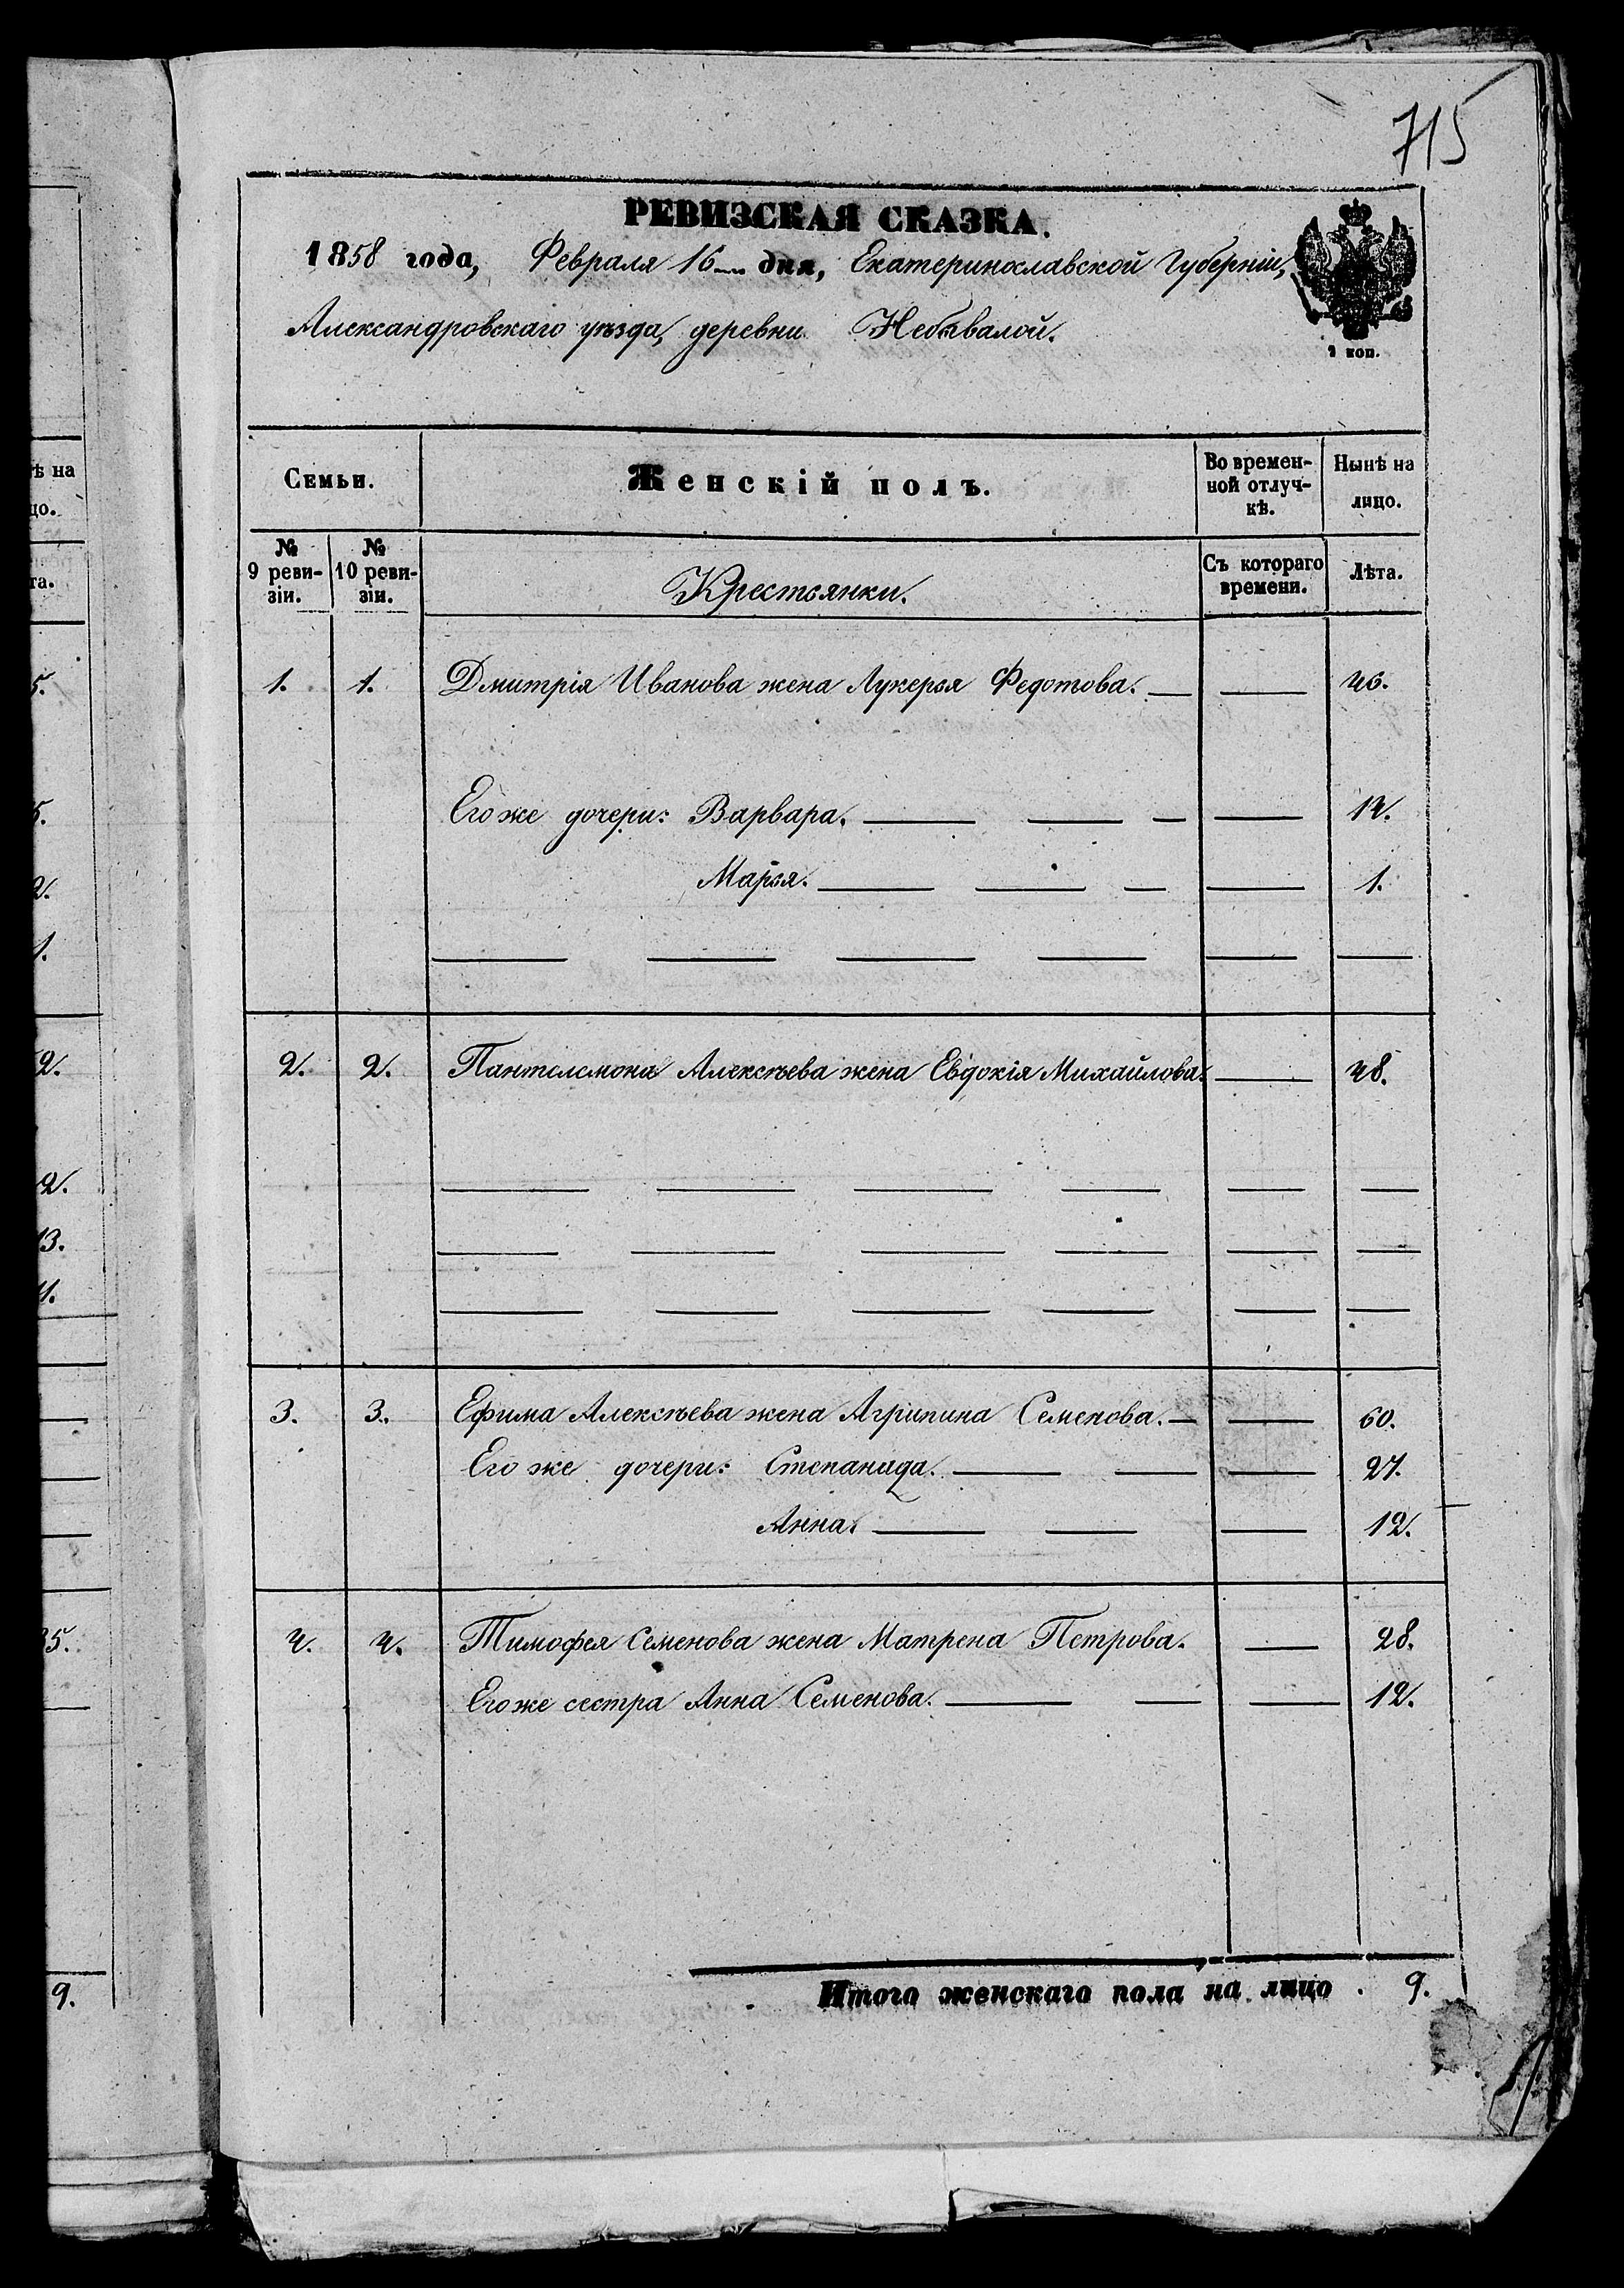 715
РЕВИЗСКАЯ СКАЗКА.
1858 года, Февраля 16 дня, Екатеринославской Губерніи,
Александровскаго уѣзда, деревни Небывалой.
1 коп.
Семьи.
Женскій полъ.
Во времен-
ной отлуч-
кѣ.
Нынѣ на
лицо.
№
9 реви-
зіи.
№
10 реви-
зіи.
Крестьянки.
Съ котораго
времени.
Лѣта.
1. 1. Дмитрія Иванова жена Лукерья Федотова. — — 46.
Его же дочери: Варвара. — — — — 14.
Марья. — — — — 1.
2. 2. Пантелемона Алексѣева жена Евдокія Михайлова. — 48.
3. 3. Ефима Алексѣева жена Агрипина Семенова. — — 60.
Его же дочери: Степанида. — — — 27.
Анна. — — — 12.
4. 4. Тимофея Семенова жена Матрена Петрова. — 28.
Его же сестра Анна Семенова. — — — 12.
Итого женскаго пола на лицо . 9.
ѣ на
цо.
та.
5.
5.
2.
1.
2.
2.
13.
11.
35.
9.